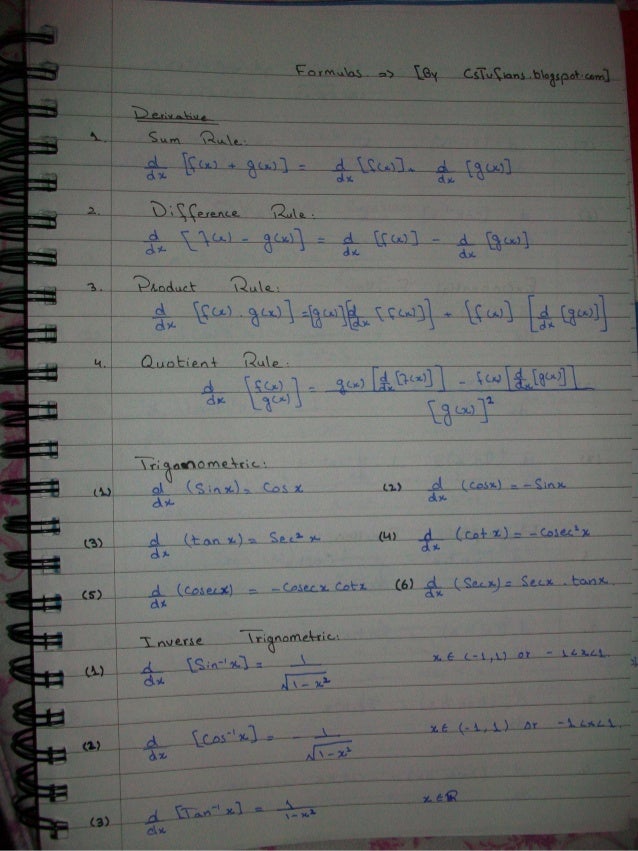 Formulas => [By CsTufians.blogspot.com]
Derivative
1. Sum Rule:
d/dx [f(x) + g(x)] = d/dx [f(x)] + d/dx [g(x)]
2. Difference Rule:
d/dx [f(x) - g(x)] = d/dx [f(x)] - d/dx [g(x)]
3. Product Rule:
d/dx [f(x) . g(x)] = [g(x)][d/dx [f(x)]] + [f(x)] [d/dx [g(x)]]
4. Quotient Rule:
d/dx [f(x)/g(x)] = g(x) [d/dx [f(x)]] - f(x) [d/dx [g(x)]] / [g(x)]²
Trignometric:
(1) d/dx (Sinx) = Cos x (2) d/dx (Cosx) = -Sinx
(3) d/dx (tan x) = Sec² x (4) d/dx (cot x) = -Cosec²x
(5) d/dx (Cosecx) = -Cosecx Cotx (6) d/dx (Secx) = Secx . tanx.
Inverse Trignometric:
(1) d/dx [Sin⁻¹x] = 1/√1-x² x ∈ (-1,1) or -1<x<1.
(2) d/dx [Cos⁻¹x] = -1/√1-x² x ∈ (-1,1) or -1<x<1.
(3) d/dx [Tan⁻¹x] = 1/1-x² x ∈ ℝ